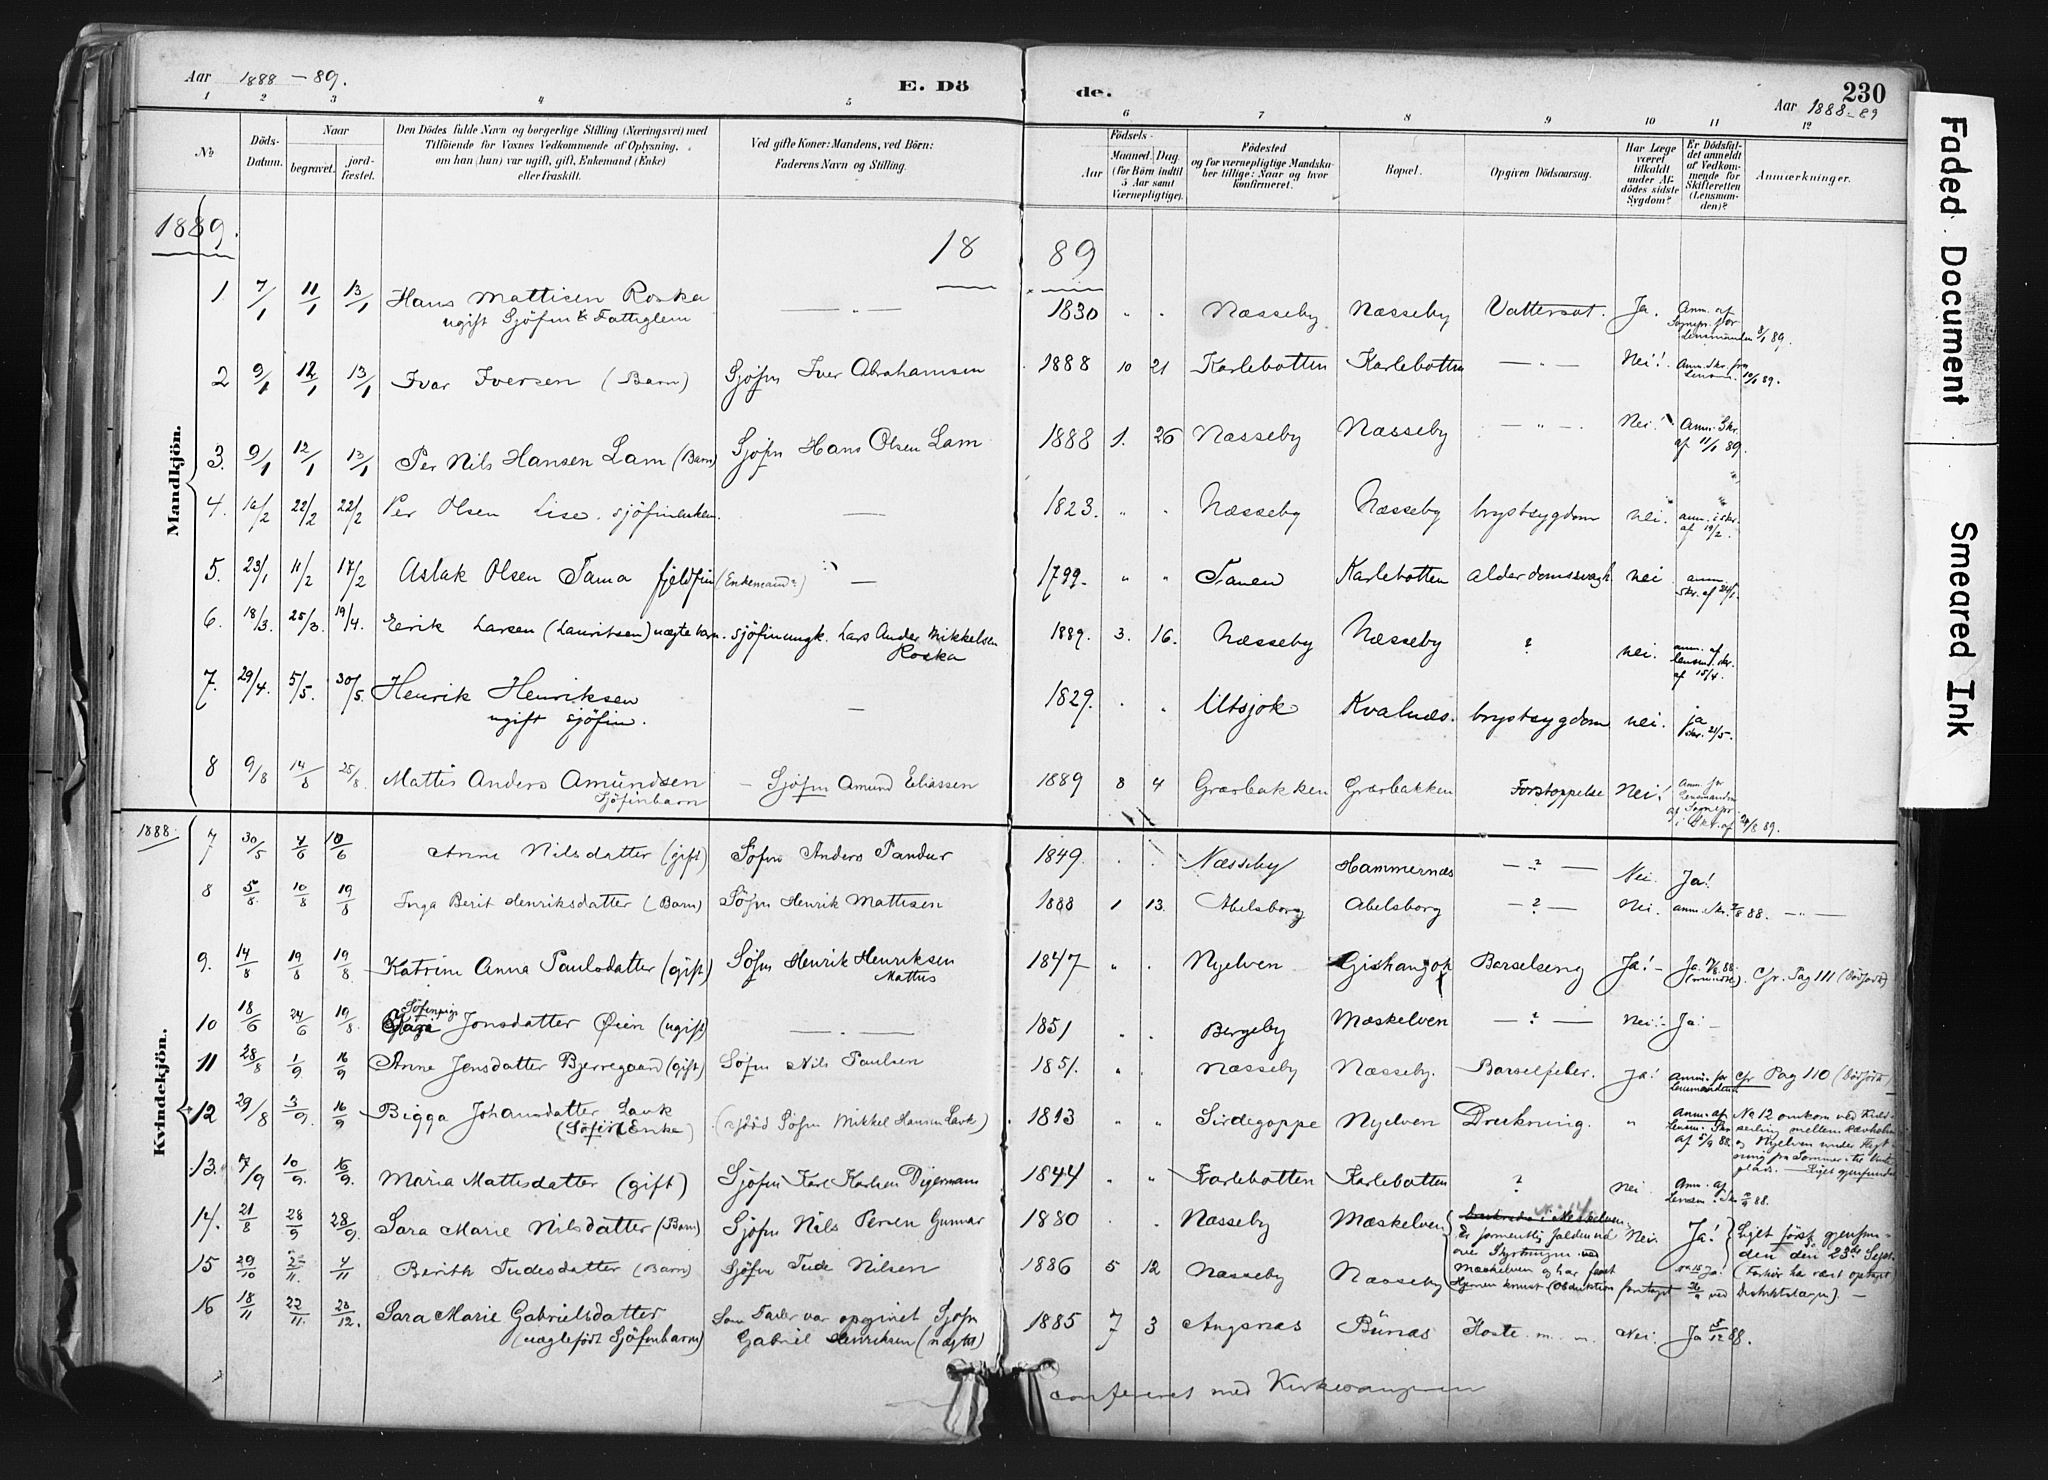 Aar 1888-89.
E. Dö
de.
230
Aar 1888-89
1 2 3 4 5 6 7 8 9 10 11 12
No
Döds-Datum.
Naar
begravet.
jord-fæstet.
Den Dödes fulde Navn og borgerlige Stilling (Næringsvei) med
Tilföiende for Voxnes Vedkommende af Oplysning,
om han (hun) var ugift, gift, Enkemand (Enke)
eller fraskilt.
Ved gifte Koner: Mandens, ved Börn:
Faderens Navn og Stilling.
Födsels-
Aar
Maaned. Dag
(for Börn indtil
5 Aar samt
Værnepligtige).
Födested
og for værnepligtige Mandska-
ber tillige: Naar og hvor
konfirmeret.
Bopæl.
Opgiven Dödsaarsag.
Har Læge
været
tilkaldt
under Af-
dödes sidste
Sygdom?
Er Dödsfal-
det anmeldt
af Vedkom-
mende for
Skifteretten
(Lensman-
den)?
Anmærkninger.
Faded Document
Smeared Ink
1889.
18 89
Mandkjön.
1 7/1 11/1 13/1 Hans Mattisen Roska — " — 1830 " " Næsseby Næsseby Vattersot. Ja. Anm. af
ugift Sjöfin & Fattiglem Lensmanden 8/1 89.
2 9/1 12/1 13/1 Ivar Iversen (Barn) Sjöfin Iver Abrahamsen 1888 10 21 Karlebotten Karlebotten — " — Nei!
3. 9/1 12/1 13/1 Per Nils Hansen Lam (Barn) Sjöfin Hans Olsen Lam 1888 1. 26 Næsseby Næsseby — " — Nei! Anm. Skr. af 11/1 89.
4. 22/2 22/2 Per Olsen Lise. — 1823. " " Næsseby Næsseby brystsygdom nei. anm. i skr. af 19/2.
5. 23/1 11/2 17/2 Aslak Olsen Tama fjeldfin (Enkemand?) — 1799. " " Tanen Karlebotten alderdomssvagh. nei
6. 18/3. 25/3 19/4. Eerik Larsen (Lauritsen) ægte barn. sjöfinungk. Lars Ander Mikkelsen 1889. 3. 16. Næsseby Næsseby ? nei.
Roska anm. af lensm. skr. af 15/4.
7. 29/4. 5/5. 30/5. Henrik Henriksen — 1829. " " Utsjok Kvalnæs. brystsygdom nei. ja skr. 21/5.
ugift sjöfin.
8 9/8 14/8 25/8. Mattis Anders Amundsen — Sjöfin Amund Eliassen 1889 8 4 Græsbakken Græsbakken Forstoppelse Nei! Anm. for Lensmanden
Sjöfinbarn
1888
Kvindekjön.
7 30/5 4/6 10/6 Anne Nilsdatter (gift) Söfin Anders Pandur 1849. " " Næsseby Hammernæs — ? — Nei. Ja!
8 5/8. 10/8 19/8 Inga Berit Henriksdatter (Barn) Söfin Henrik Mattisen 1888 1 13. Abelsborg Abelsborg — ? — Nei. anm. Skr. 7/8 88. — " —
9. 14/8 19/8 19/8 Katrine Anna Paulsdatter (gift) Söfin Henrik Henriksen 1847 " " Nyelven Barselseng Ja! - Cfr. Pag 111 (Dödföd)
Mattus
10 18/6 24/6 19/8. Söfinpige Jonsdatter Øien (ugift) — 1851 " " Bergeby Mæskelven — ? — Nei! - Ja! -
11 28/8 1/9 16/9 Anne Jonsdatter Bjerregaard (gift) Söfin Nils Paulsen 1851. " Næsseby Næsseby. Barselfeber. Ja! Anm. for Lensmanden cfr Pag 110 (Dödföd)
12 29/8 3/9. 16/9 Bigga Johansdatter Lavk (Död Söfin Mikkel Hansen Lavk) 1813 " " Sirdegoppe Nyelven Drukning. " Anm. af Lensm. Skr af 5/9 88.
(Söfin Enke)
No 12 omkom ved Kuld-
seiling mellem
og Nyelven under Flyt-
ning fra Sommer- til
plads. — Liget gjenfundet
13. 7/9 10/9. 16/9. Maria Mattisdatter (gift) Sjöfin Karl Karlsen Digermann 1844 " " Karlebotten Karlebotten ? Nei Anm. af Lensm.
14. 21/8 28/9 28/9. Sara Marie Nilsdatter (Barn) Sjöfin Nils Persen Gunnar 1880 Næsseby Mæskelven Nei. Ja!
No. 14
Er formentlig falden ud
over Styrtningen ved
Mæskelven og har faaet
Hjernen knust (Obduktion foretaget
Liget först gjenfun-
den den 23de Sept.
(Forhör ha vært optaget
ved Distriktslægen). —
15 29/10 4/11 Berith Tudesdatter (Barn) Sjöfin Tude Nilsen 1886 5 12 Næsseby Næsseby no 15 Ja!
16 18/11 22/11. 28/12. Sara Marie Gabrielsdatter Som Fader var opgivet Sjöfin 1885 7 3 Angsnæs Bünæs Hoste. m. m. Nei Ja 5/12 88.
(uægtefödt Sjöfinbarn) Gabriel Henriksen (uægte)
conferert med